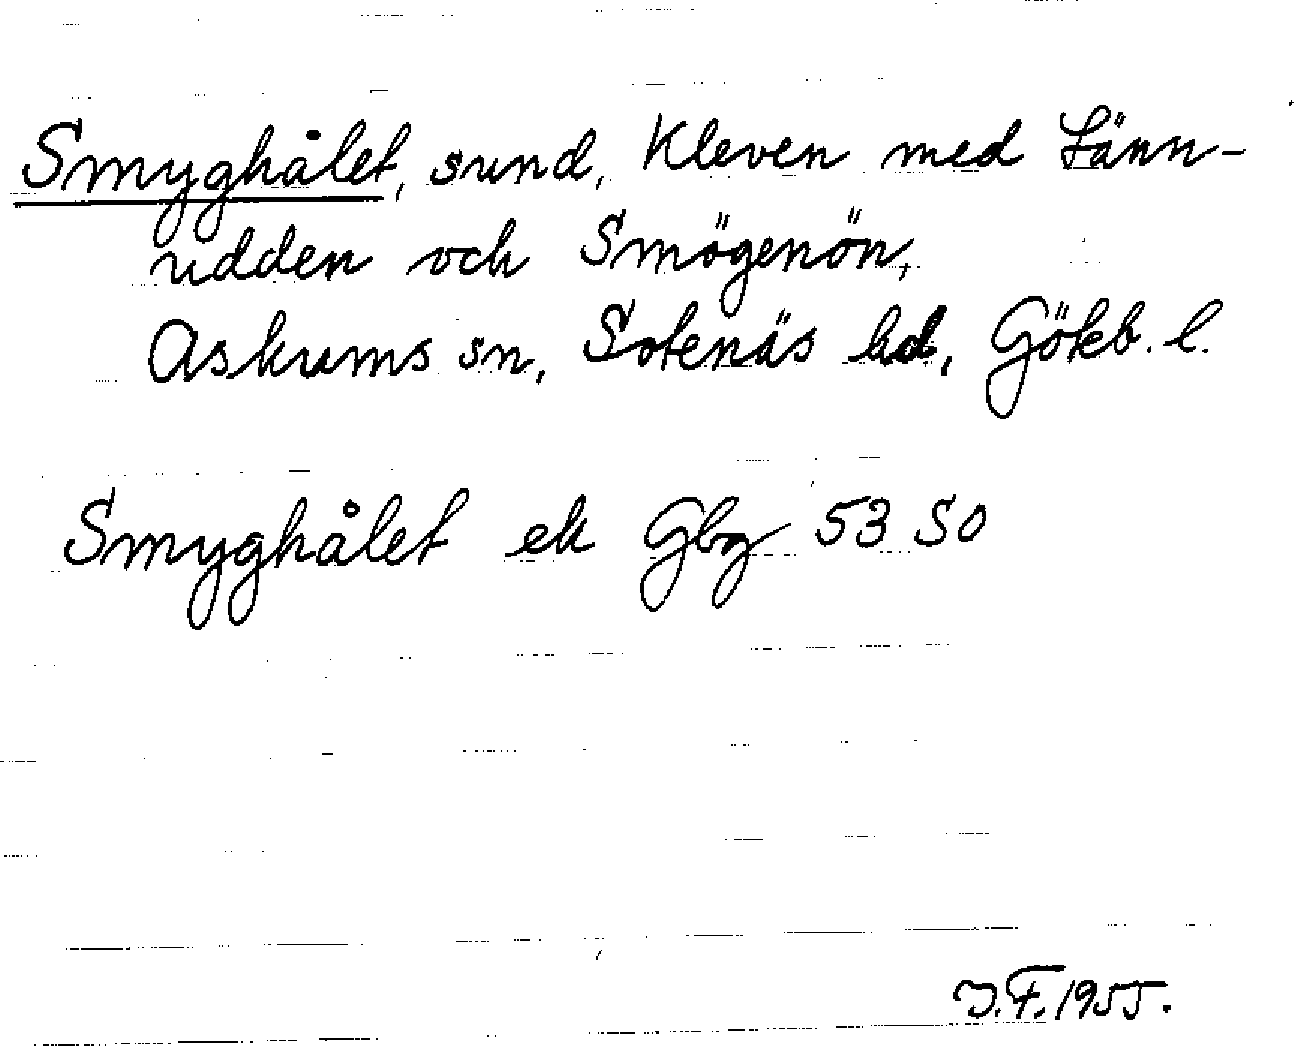 Smyghålet, sund, Kleven med Länn-
udden och Smögenön,
Askums sn, Sotenäs hd, Göteb. l.
Smyghålet ek Gbg 53 SO
J.F. 1955.